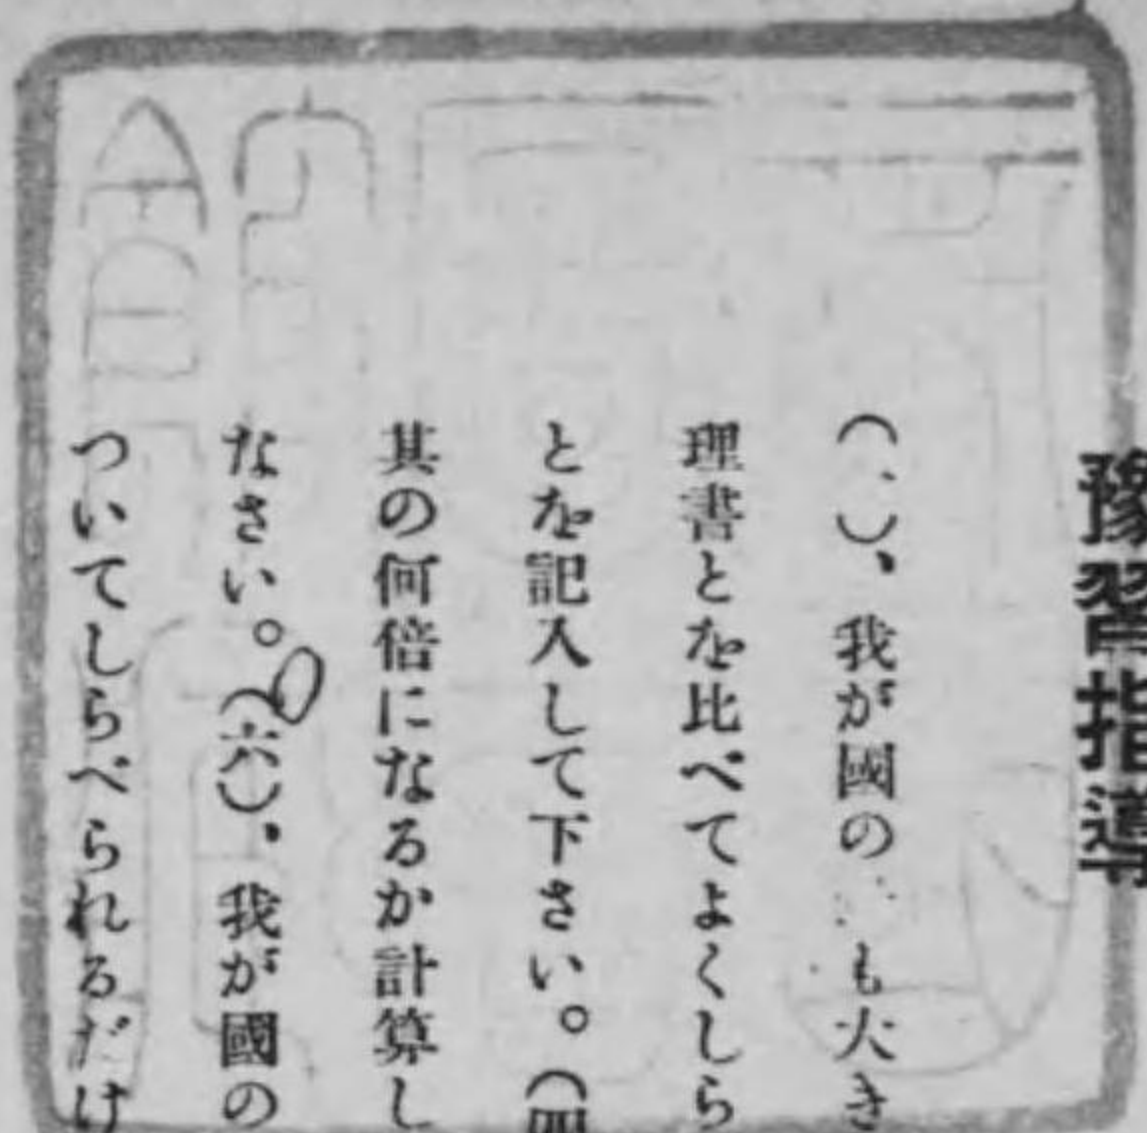 豫習指導
我が國の も大き
理書とを比べてよくしら
とを記入して下さい。(四
其の何倍になるか計算し
なさい。(六)、我が國の
ついてしらべられるだけ